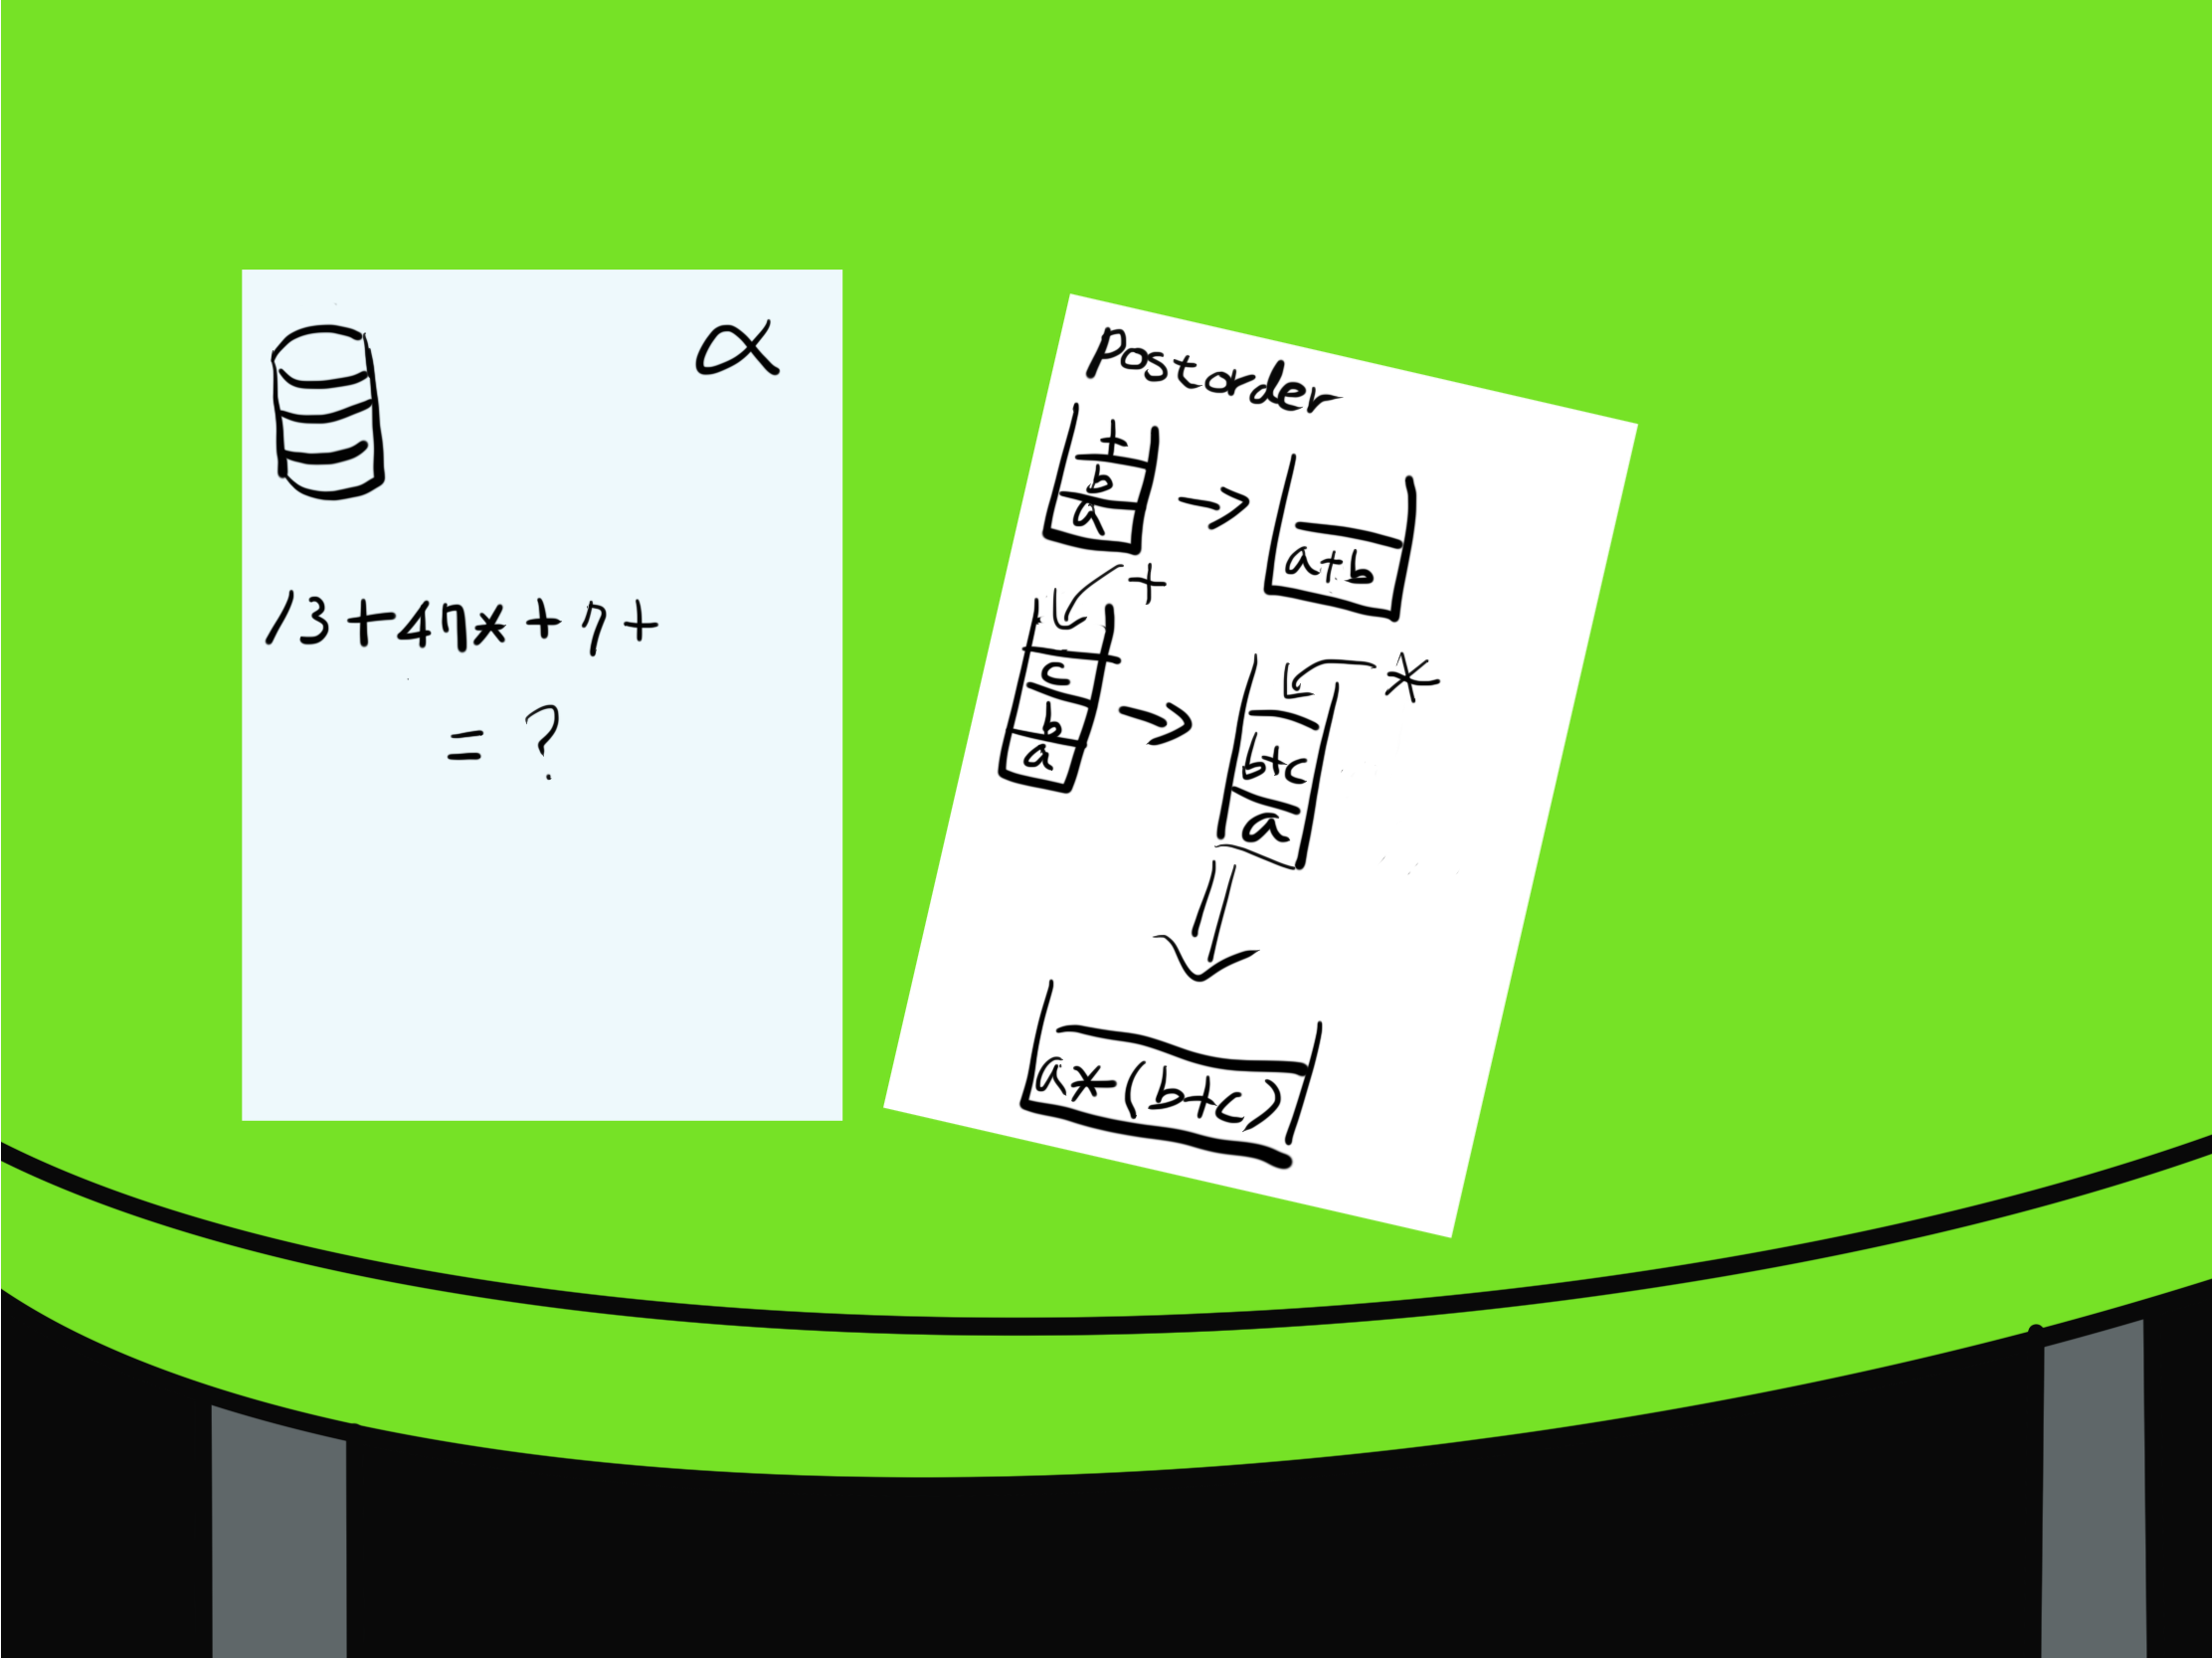 α
13+47*+7+
= ?
Postorder
+
b
a
->
a+b
+
c
b
a
->
*
b+c
a
a*(b+c)